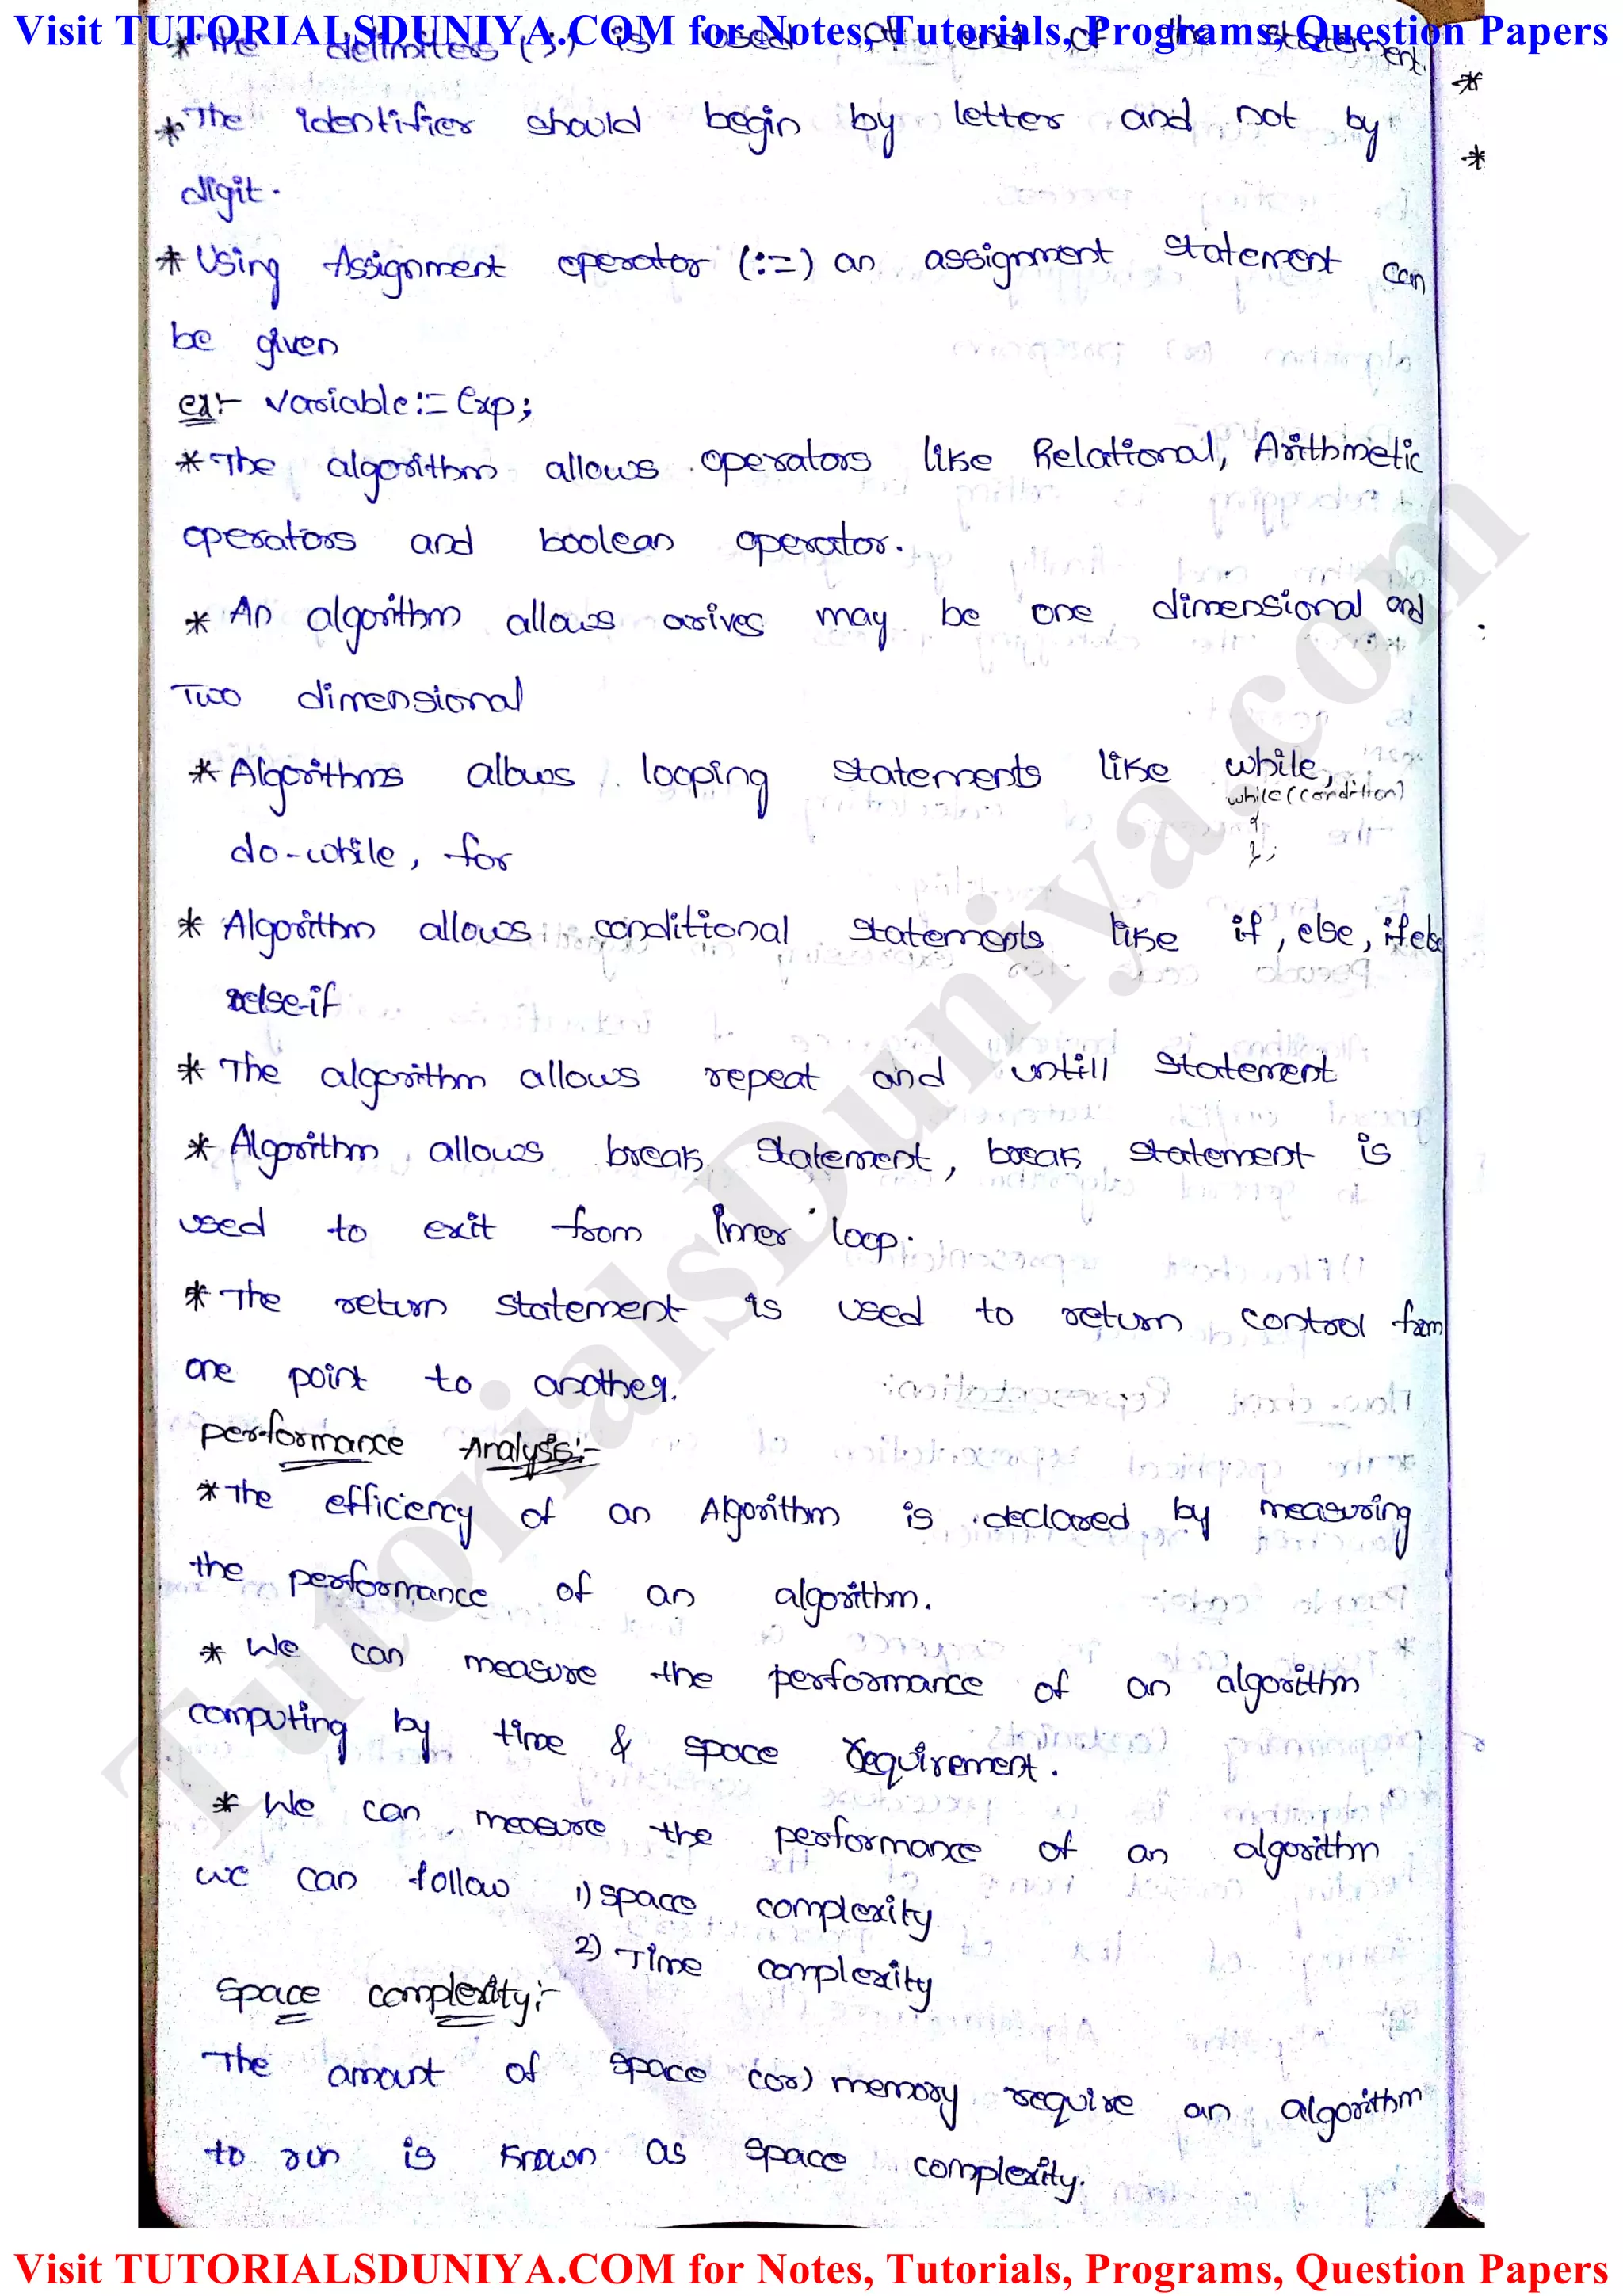 Visit TUTORIALSDUNIYA.COM for Notes, Tutorials, Programs, Question Papers
* The delimiter (;) is used at end of the statement.
* The identifier should begin by letter and not by
digit.
* Using Assignment operator (:=) an assignment statement can
be given
ex:- variable:= Exp;
* The algorithm allows operators like Relational, Arithmetic
operators and boolean operator.
* An algorithm allows may be one dimensional and
Two dimensional
* Algorithms allows looping statements like while,
while(condition)
{
};
do-while, for
* Algorithm allows conditional statements like if, else, if else
else-if
* The algorithm allows repeat and untill statement
* Algorithm allows break statement, break statement is
used to exit from inner loop.
* The return statement is used to return control from
one point to another.
performance Analysis:-
* The efficiency of an Algorithm is declared by measuring
the performance of an algorithm.
* We can measure the performance of an algorithm
computing by time & space requirement.
* We can measure the performance of an algorithm
we can follow 1) space complexity
2) Time complexity
Space complexity:-
The amount of space (or) memory require an algorithm
to run is known as space complexity.
TutorialsDuniya.com
Visit TUTORIALSDUNIYA.COM for Notes, Tutorials, Programs, Question Papers